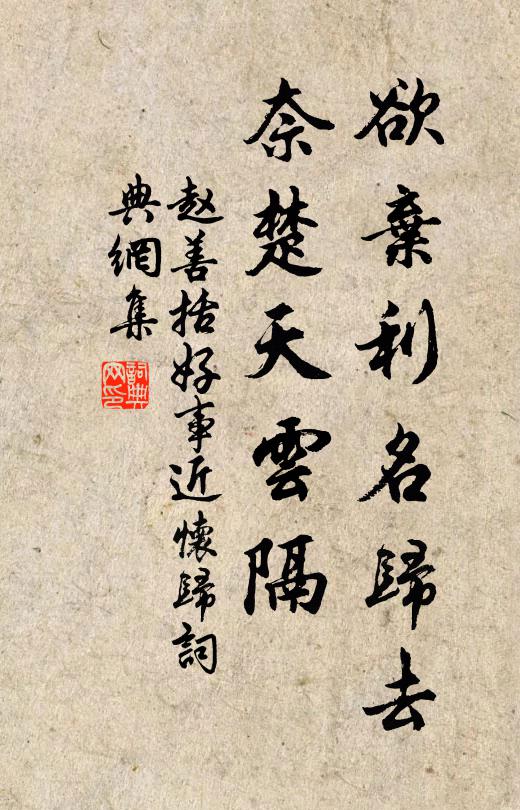 欲棄利名歸去
奈楚天雲隔
赵善括好事近懷歸詞
典網集
詞典
网印